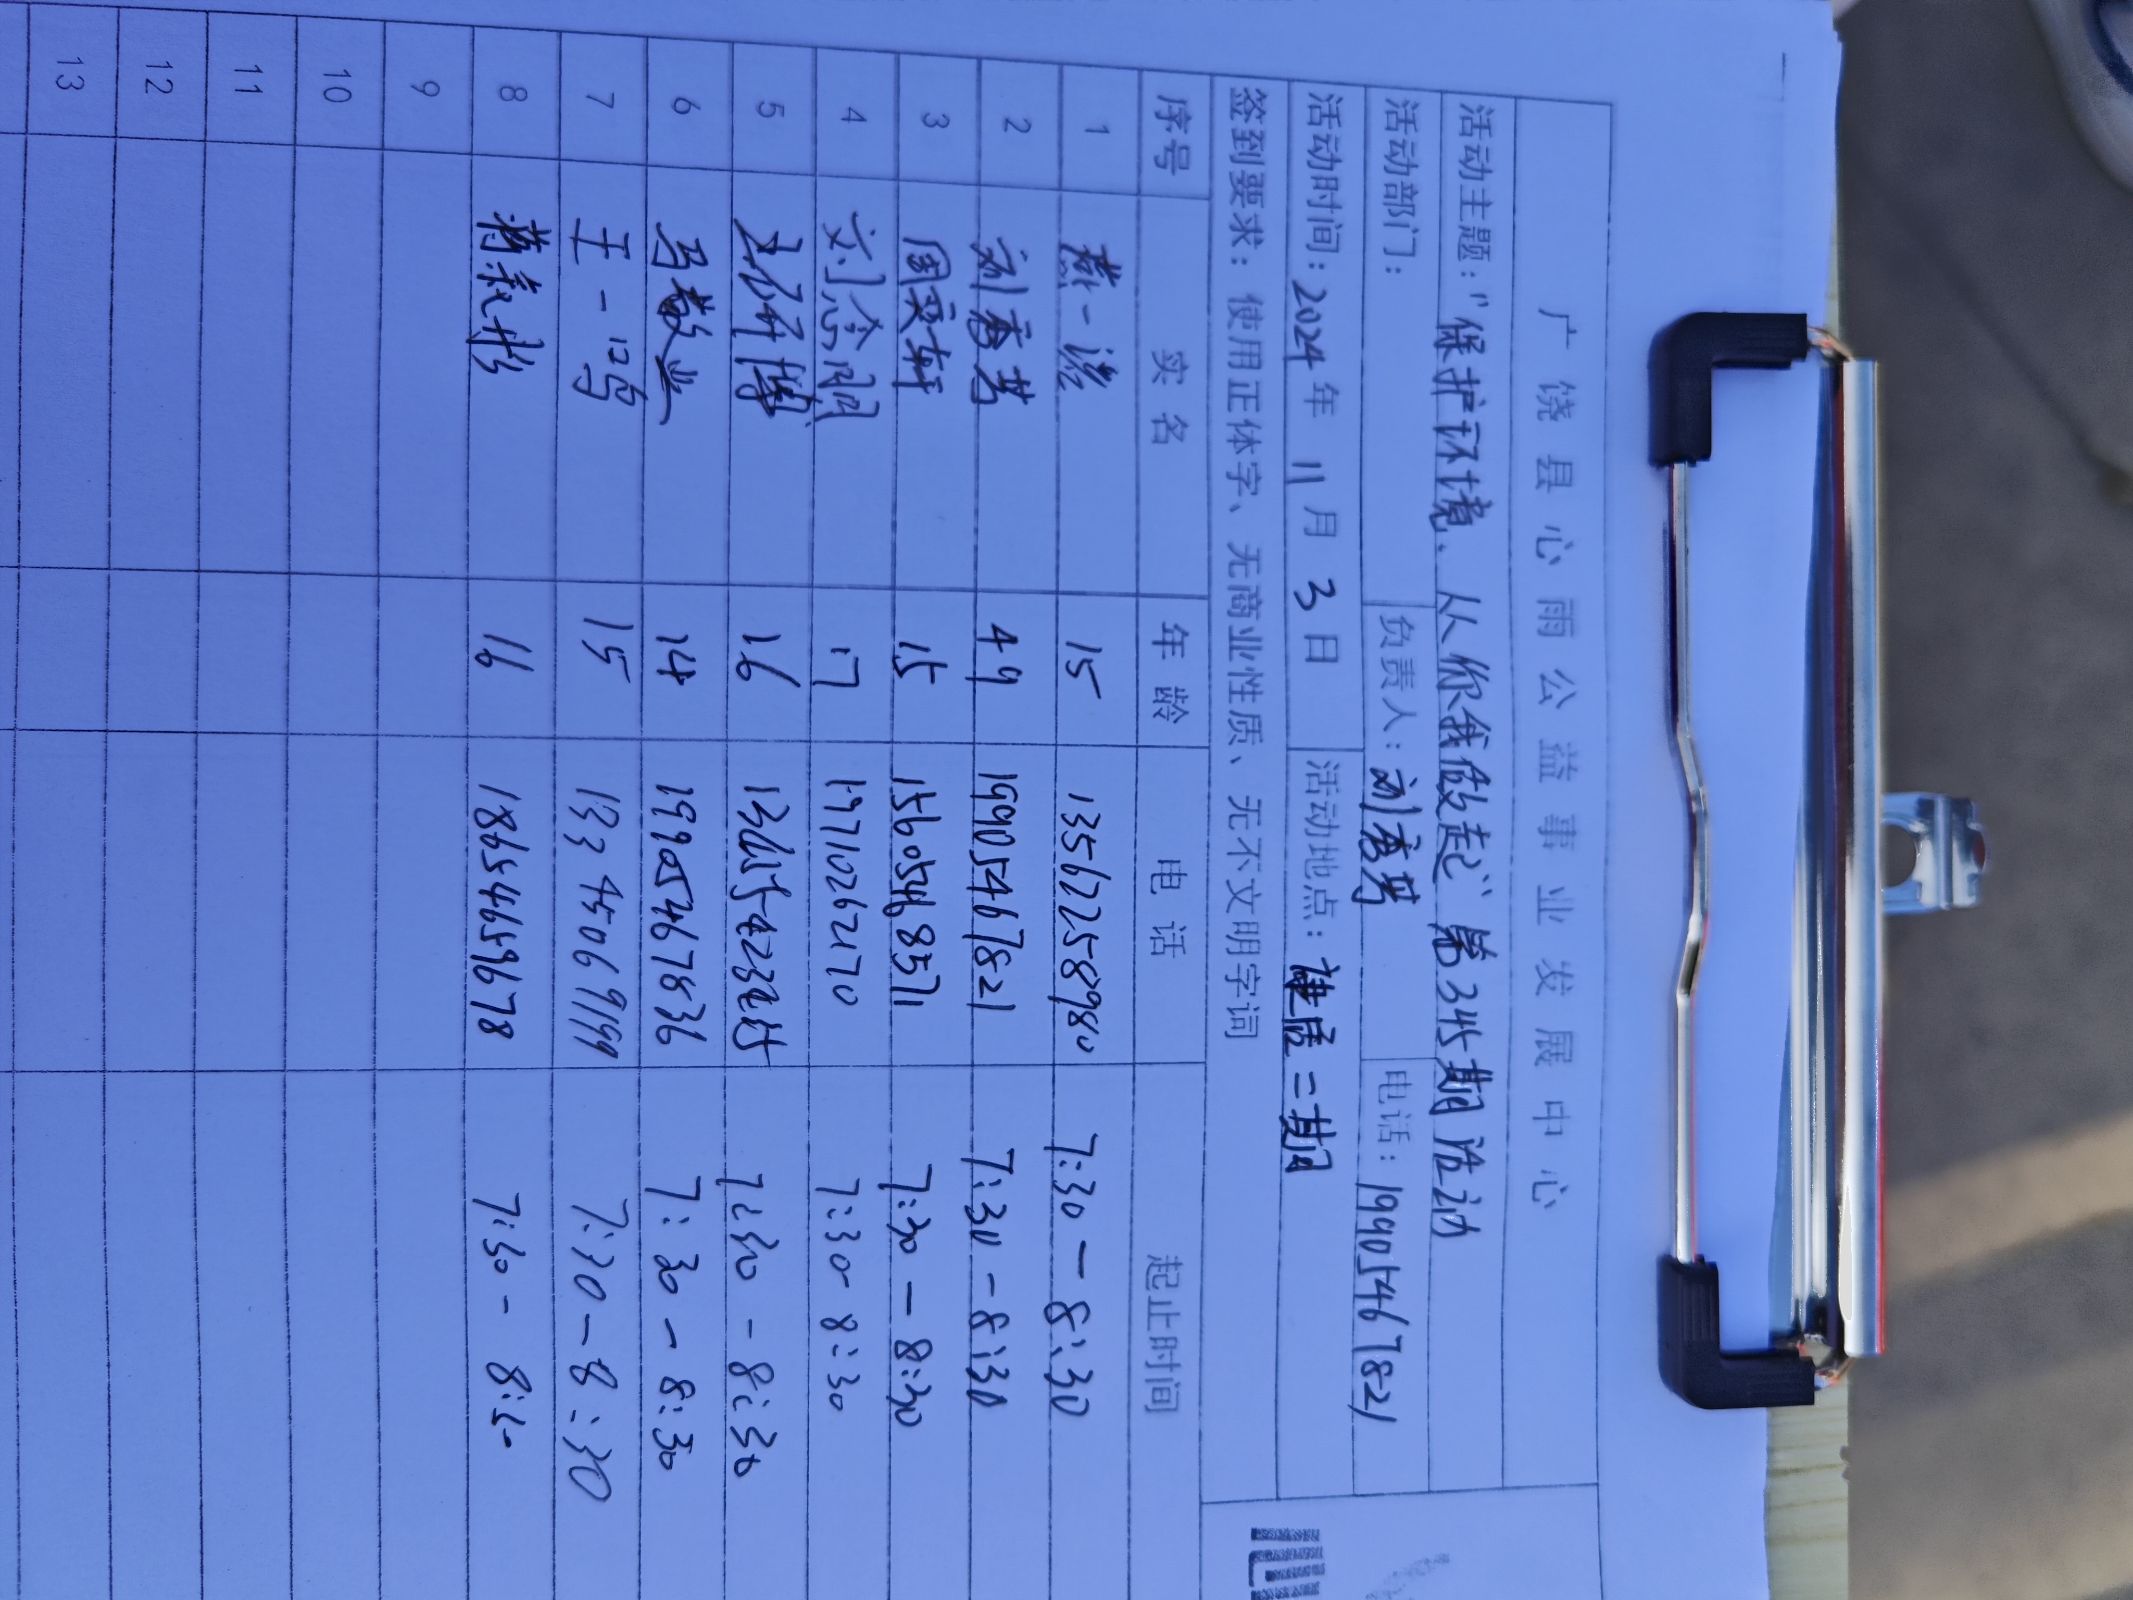 广饶县心雨公益事业发展中心
活动主题："保护环境、从你我做起" 第345期活动
活动部门： 负责人：刘秀芹 电话：19905467821
活动时间：2024年11月3日 活动地点：谦居二期
签到要求：使用正体字、无商业性质、无不文明字词
序号 实名 年龄 电话 起止时间
1 燕一诺 15 13562258980 7:30—8:30
2 刘秀芹 49 19905467821 7:30-8:30
3 周奕轩 15 15605468571 7:30—8:30
4 刘念 17 19710262170 7:30-8:30
5 16 7:30-8:30
6 马敬益 14 19905467836 7:30—8:30
7 王一鸣 15 13345069199 7:30—8:30
8 蒋彬 16 18654659678 7:30-8:30
9
10
11
12
13